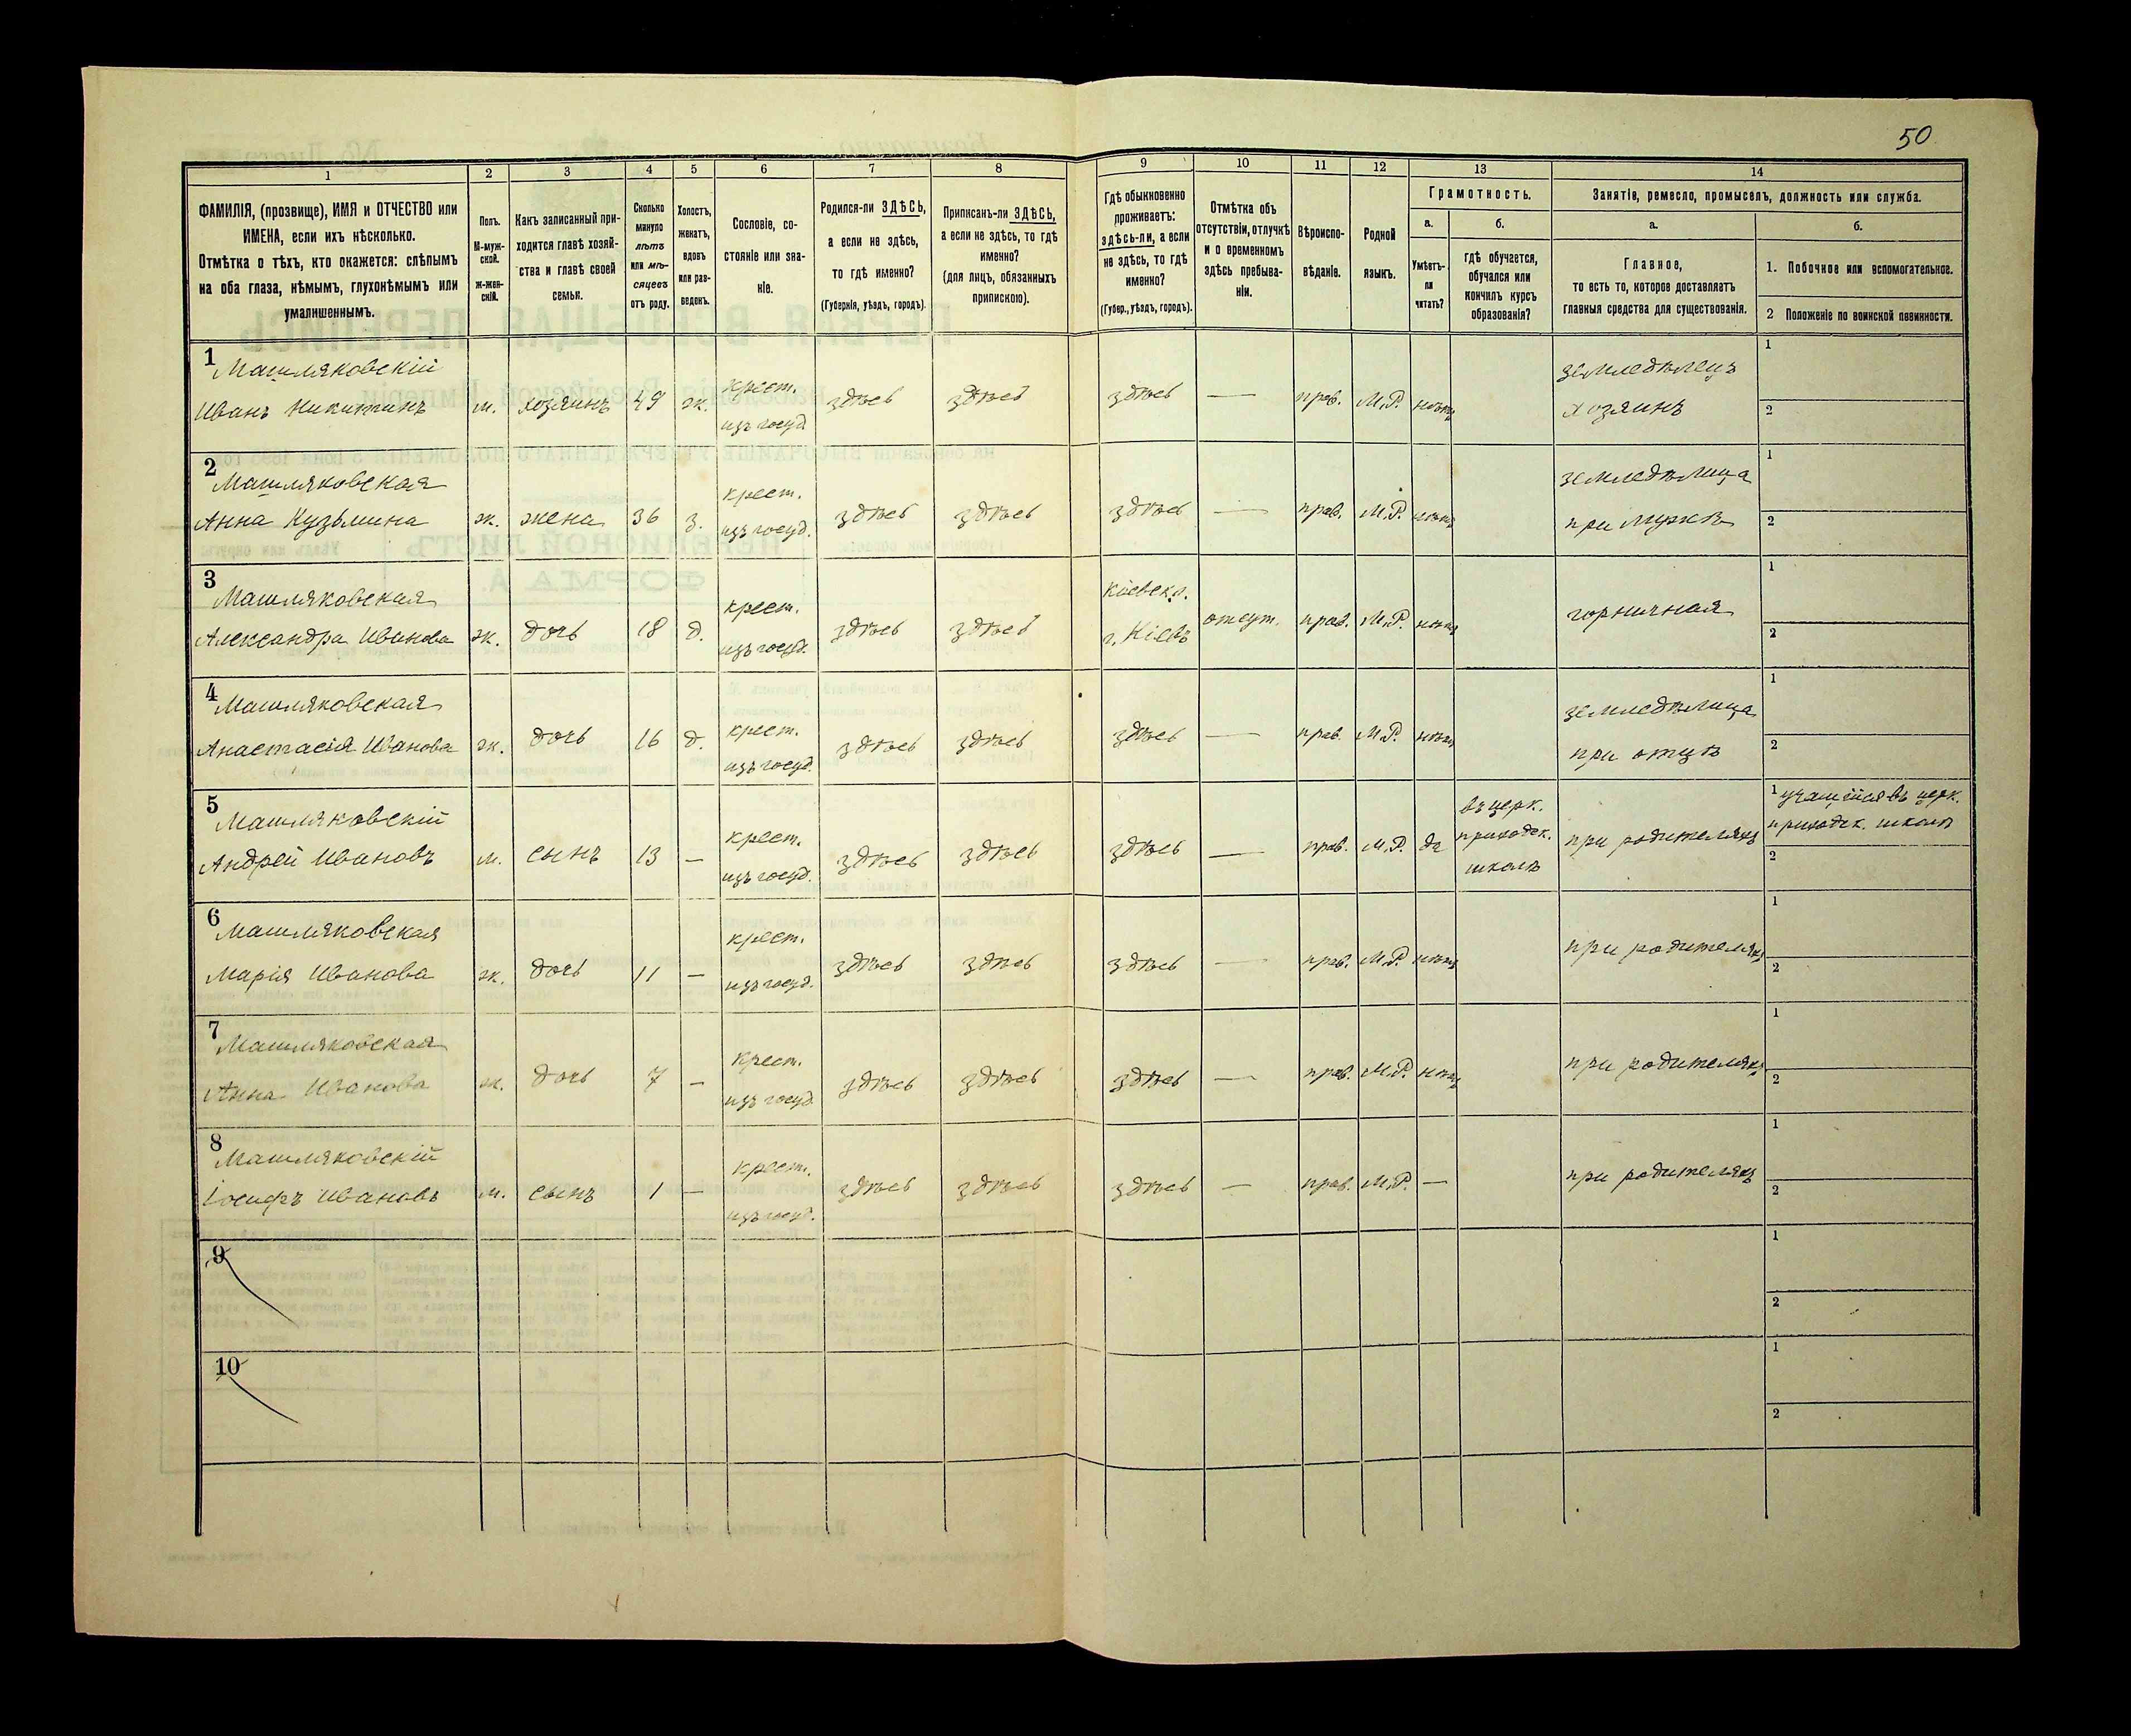 50
1
2
3
4
5
6
7
8
9
10
11
12
13
14
ФАМИЛІЯ, (прозвище), ИМЯ и ОТЧЕСТВО или
ИМЕНА, если ихъ нѣсколько.
Отмѣтка о тѣхъ, кто окажется: слѣпымъ
на оба глаза, нѣмымъ, глухонѣмымъ или
умалишеннымъ.
Полъ.
М-муж-
ской.
ж-жен-
скій.
Какъ записанный при-
ходится главѣ хозяй-
ства и главѣ своей
семьи.
Сколько
минуло
лѣтъ
или мѣ-
сяцевъ
отъ роду.
Холостъ,
женатъ,
вдовъ
или раз-
веденъ.
Сословіе, со-
стояніе или зва-
ніе.
Родился-ли ЗДѢСЬ,
а если не здѣсь,
то гдѣ именно?
(Губернія, уѣздъ, городъ).
Приписанъ-ли ЗДѢСЬ,
а если не здѣсь, то гдѣ
именно?
(для лицъ, обязанныхъ
припискою).
Гдѣ обыкновенно
проживаетъ:
здѣсь-ли, а если
не здѣсь, то гдѣ
именно?
(Губер., уѣздъ, городъ).
Отмѣтка объ
отсутствіи, отлучкѣ
и о временномъ
здѣсь пребыва-
ніи.
Вѣроиспо-
вѣданіе.
Родной
языкъ.
Грамотность.
а.
Умѣетъ-
ли
читать?
б.
гдѣ обучается,
обучался или
кончилъ курсъ
образованія?
Занятіе, ремесло, промыселъ, должность или служба.
а.
Главное,
то есть то, которое доставляетъ
главныя средства для существованія.
б.
1. Побочное или вспомогательное.
2 Положеніе по воинской повинности.
1
Машляковскій
Иванъ Никитинъ
м.
хозяинъ
49
ж.
крест.
изъ госуд.
здѣсь
здѣсь
здѣсь
—
прав.
М.Р.
нѣтъ
земледѣлецъ
хозяинъ
1
2
2
Машляковская
Анна Кузьмина
ж.
жена
36
з.
крест.
изъ госуд.
здѣсь
здѣсь
здѣсь
—
прав.
М.Р.
нѣтъ
земледѣлица
при мужѣ
1
2
3
Машляковская
Александра Иванова
ж.
дочь
18
д.
крест.
изъ госуд.
здѣсь
здѣсь
Кіевск.
г. Кіевъ
отсут.
прав.
М.Р.
нѣтъ
горничная
1
2
4
Машляковская
Анастасія Иванова
ж.
дочь
16
д.
крест.
изъ госуд.
здѣсь
здѣсь
здѣсь
—
прав.
М.Р.
нѣтъ
земледѣлица
при отцѣ
1
2
5
Машляковскій
Андрей Ивановъ
м.
сынъ
13
—
крест.
изъ госуд.
здѣсь
здѣсь
здѣсь
—
прав.
М.Р.
да
въ церк.
приходск.
школѣ
при родителяхъ
1 учащійся въ церк.
приходск. школѣ
2
6
Машляковская
Марія Иванова
ж.
дочь
11
—
крест.
изъ госуд.
здѣсь
здѣсь
здѣсь
—
прав.
М.Р.
нѣтъ
при родителяхъ
1
2
7
Машляковская
Анна Иванова
ж.
дочь
7
—
крест.
изъ госуд.
здѣсь
здѣсь
здѣсь
—
прав.
М.Р.
нѣтъ
при родителяхъ
1
2
8
Машляковскій
Іосифъ Ивановъ
м.
сынъ
1
—
крест.
изъ госуд.
здѣсь
здѣсь
здѣсь
—
прав.
М.Р.
—
при родителяхъ
1
2
9
1
2
10
1
2